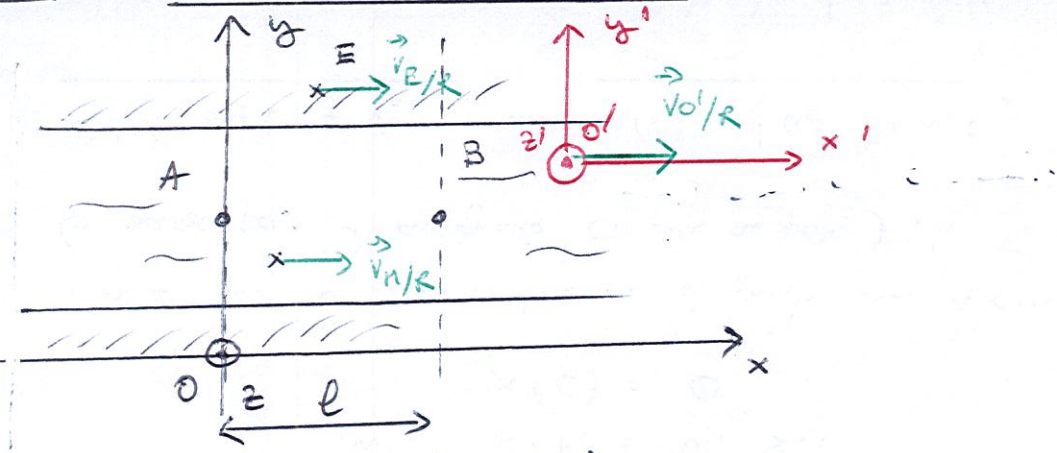 y
y'
E
V⃗E/R
V⃗O'/R
z'
O'
x'
B
A
V⃗M/R
x
O
z
l